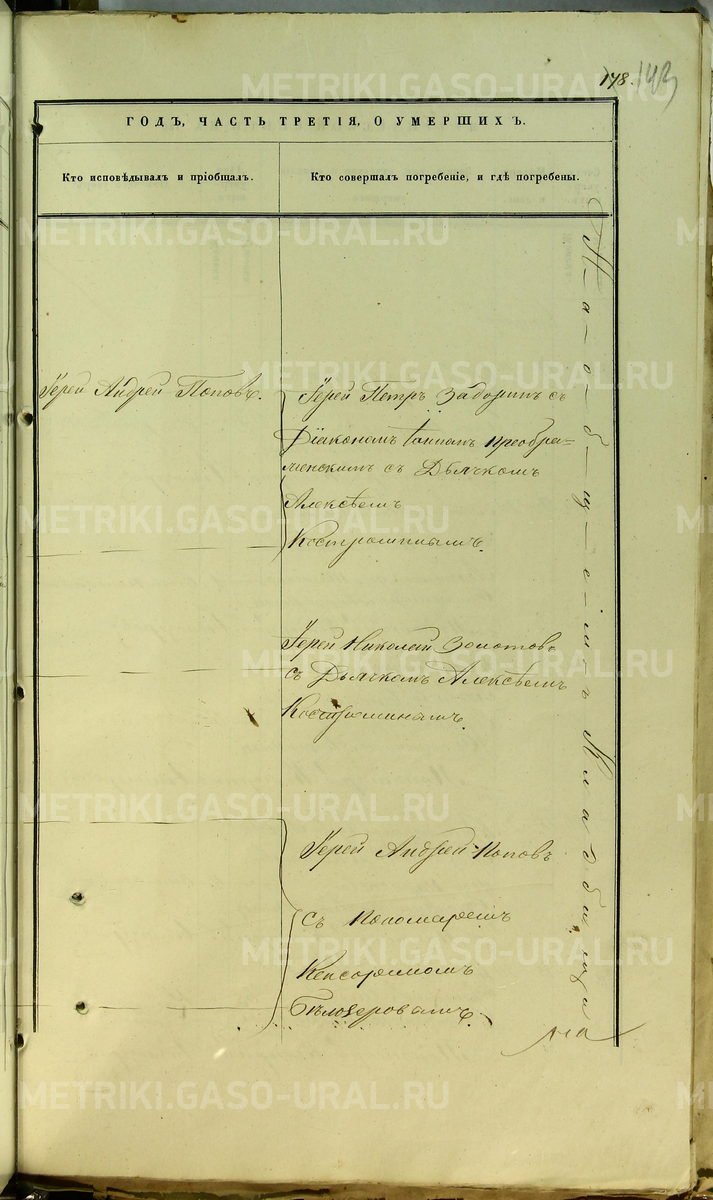 178. 143
ГОДЪ, ЧАСТЬ ТРЕТІЯ, О УМЕРШИХЪ.
Кто исповѣдывалъ и пріобщалъ.
Кто совершалъ погребеніе, и гдѣ погребены.
Іерей Андрей Поповъ.
Іерей Петръ Задоринъ съ
Діакономъ Іоанномъ Преобра-
женскимъ съ Дьячкомъ
Алексѣемъ
Костроминымъ.
Іерей Николай Золотовъ
съ Дьячкомъ Алексѣемъ
Костроминымъ.
Іерей Андрей Поповъ
Съ Пономаремъ
Кенсориномъ
Бѣлозеровымъ.
На общемъ кладбищѣ
METRIKI.GASO-URAL.RU